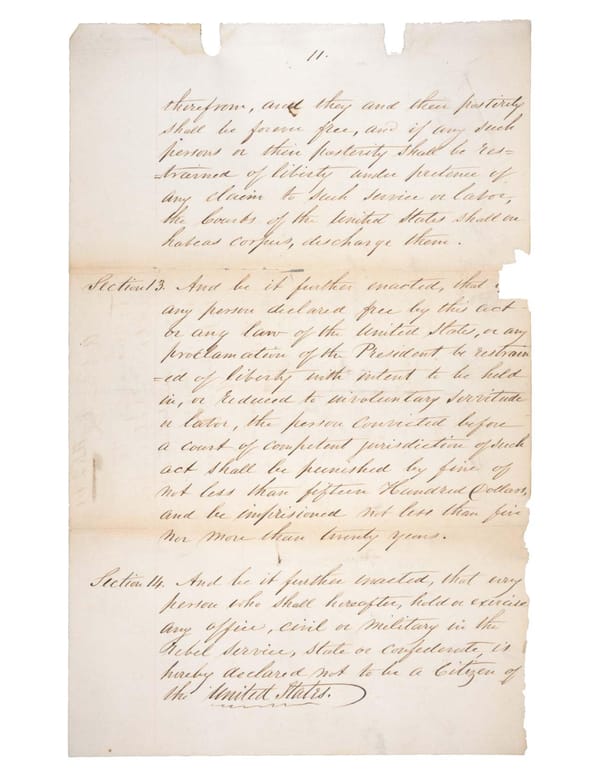 11.
therefrom, and they and their posterity
shall be forever free, and if any such
persons or their posterity shall be res=
=trained of liberty under pretence of
any claim to such service or labor,
the Courts of the United States shall on
habeas corpus, discharge them.
Section 13. And be it further enacted, that
any person declared free by this act
or any law of the United States, or any
proclamation of the President, be restrain
=ed of liberty with intent to be held
in, or reduced to involuntary servitude
or labor, the person convicted before
a court of competent jurisdiction of such
act shall be punished by fine of
not less than fifteen Hundred Dollars,
and be imprisioned not less than five
nor more than twenty years.
Section 14. And be it further enacted, that every
person who shall hereafter, hold or exercise
any office, civil or military in the
Rebel service, State or Confederate, is
hereby declared not to be a Citizen of
the United States.